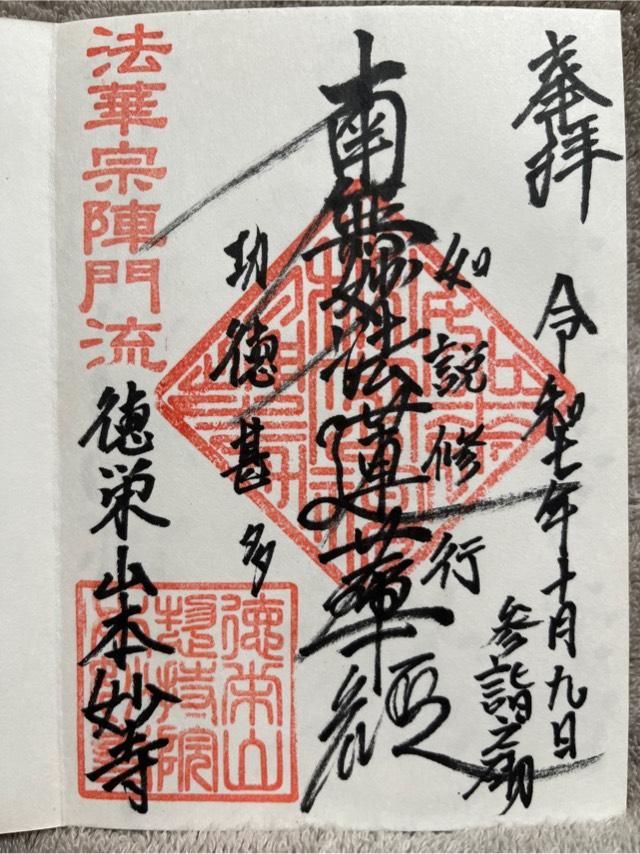 奉拝
令和七年十月九日
参詣之砌
如説修行
南無妙法蓮華経
功徳甚多
法華宗陣門流
徳栄山本妙寺